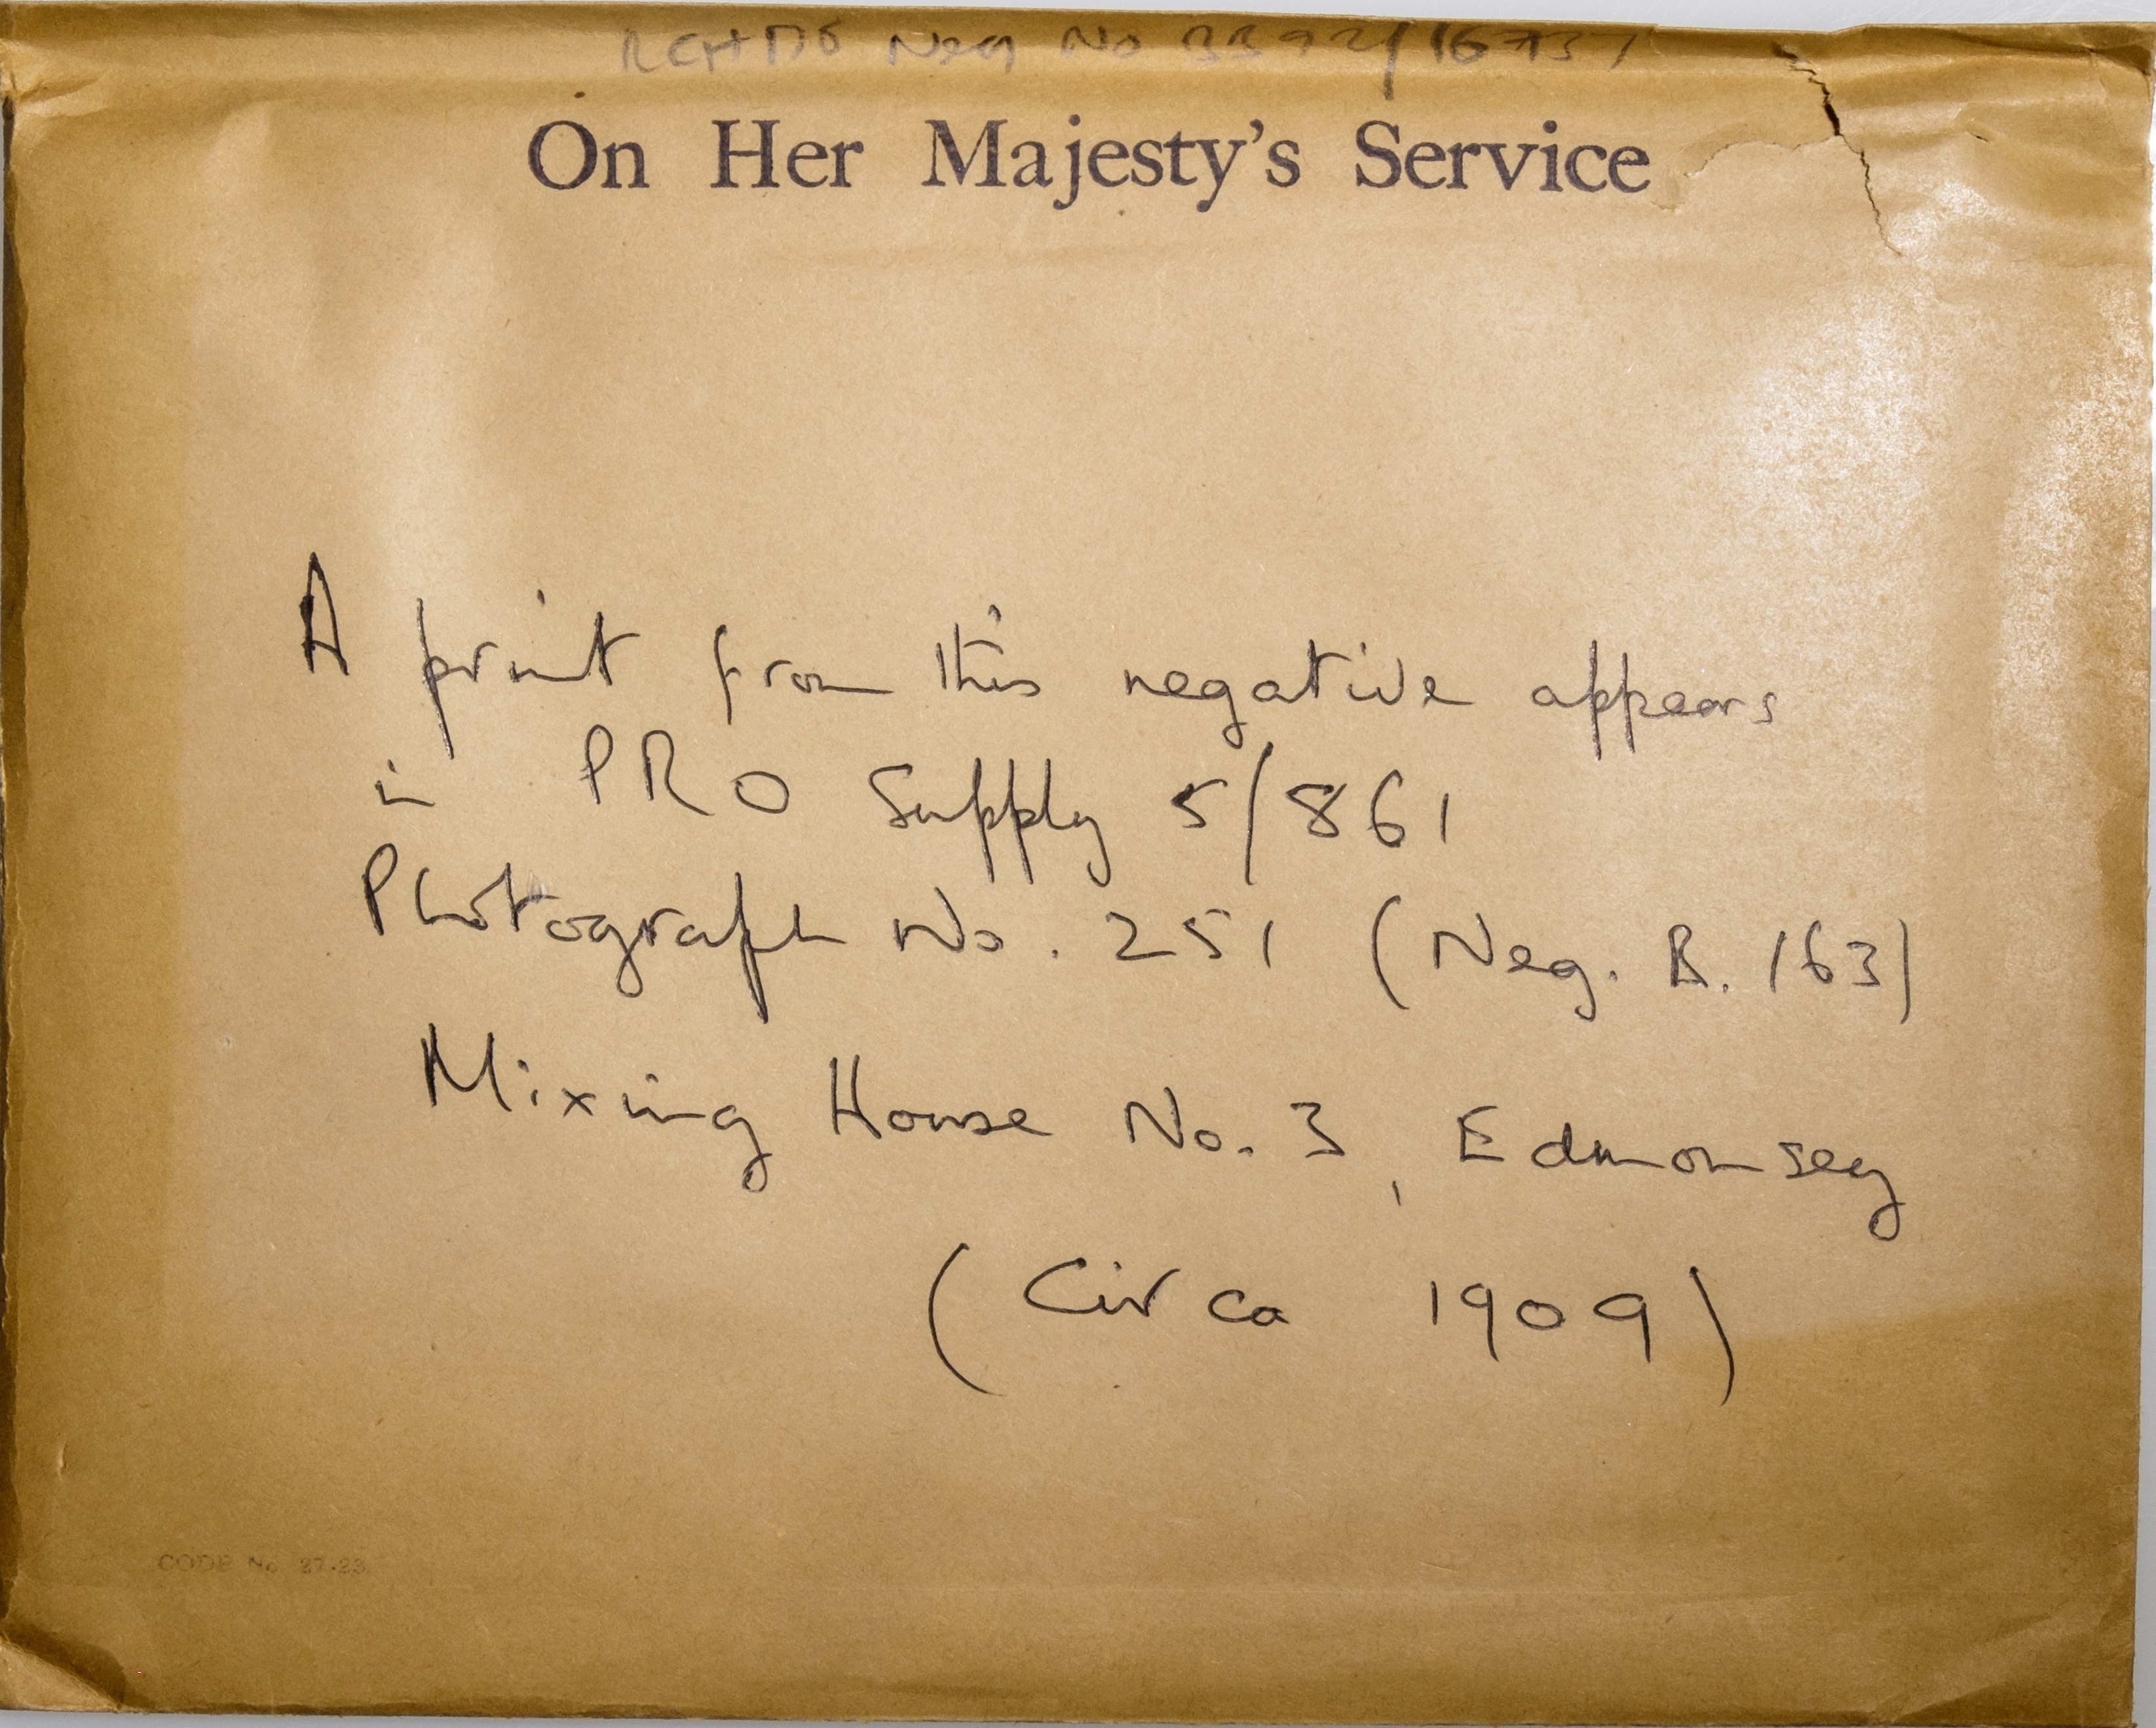 RCHME Neg No BB92/16737
On Her Majesty's Service
A print from this negative appears
in PRO Supply 5/861
Photograph No. 251 (Neg. B. 163)
Mixing House No. 3, Edmonsey
(Circa 1909)
CODE No 27-23